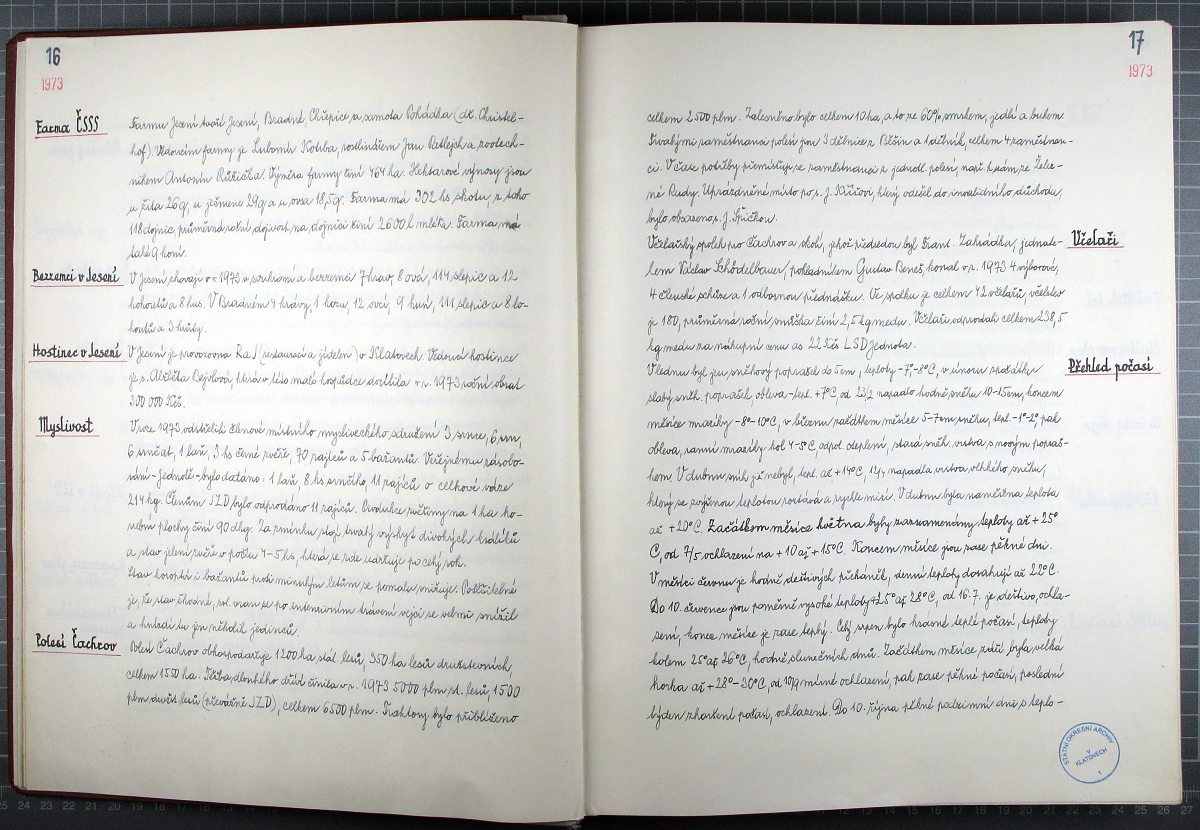 16
1973
Farma ČSSS
Farmu Jesení tvoří Jesení, Bradné, Chřepice a samota Pohádka (dř. Christel-
hof). Vedoucím farmy je Lubomír Kotrba, rostlinářem Jan Petlejch a zootech-
nikem Antonín Růžička. Výměra farmy činí 464 ha. Hektarové výnosy jsou
u žita 26 q, u ječmene 29 q a u ovsa 18,5 q. Farma má 302 ks skotu, z toho
118 dojnic, průměrná roční dojivost na dojnici činí 2600 l mléka. Farma má
také 9 koní.
Bezzemci v Jesení
V Jesení chovají v r. 1973 v soukromí a bezzemci 7 krav, 8 ovcí, 114 slepic a 12
kohoutů a 8 hus. V Bradném 4 krávy, 1 kozu, 12 ovcí, 9 husí, 111 slepic a 8 ko-
houtů a 3 krůty.
Hostinec v Jesení
V Jesení je provozovna RaJ (restaurací a jídelen) v Klatovech. Vedoucí hostince
je s. Alžběta Bejvlová, která v této malé hospůdce docílila v r. 1973 roční obrat
300 000 Kčs.
Myslivost
V roce 1973 odstřelili členové místního mysliveckého sdružení 3 srnce, 6 srn,
6 srnčat, 1 laň, 3 ks černé zvěře, 70 zajíců a 5 bažantů. Veřejnému zásobo-
vání - Jednotě - bylo dodáno: 1 laň, 8 ks srnčího, 11 zajíců o celkové váze
214 kg. Členům JZD bylo odprodáno 11 zajíců. Produkce zvěřiny na 1 ha ho-
nební plochy činí 90 dkg. Za zmínku stojí trvalý výskyt divokých králíků
a stav jelení zvěře o počtu 4-5 ks, která se zde udržuje po celý rok.
Stav koroptví i bažantů proti minulým letům se pomalu snižuje. Potěšitelné
je, že stav škodné, zvl. vran se po intenzivním trávení vejci se velmi snížil
a hnízdí tu jen několik jedinců.
Polesí Čachrov
Polesí Čachrov obhospodařuje 1200 ha stát. lesů, 350 ha lesů družstevních,
celkem 1550 ha. Těžba dlouhého dříví činila v r. 1973 5000 plm st. lesů, 1500
plm družst. lesů (převážně JZD), celkem 6500 plm. Traktory bylo přiblíženo
17
1973
celkem 2500 plm. Zalesněno bylo celkem 10 ha, a to ze 60% smrkem, jedlí a bukem.
Trvalými zaměstnanci polesí jsou 3 dělnice z Běšin a 1 dělník, celkem 4 zaměstnan-
ci. V čase potřeby přemísťují se zaměstnanci z jednotl. polesí, např. k nám ze Želez-
né Rudy. Uprázdněné místo po s. J. Křížovi, který odešel do invalidního důchodu,
bylo obsazeno s. J. Špičkou.
Včelaři
Včelařský spolek pro Čachrov a okolí, jehož předsedou byl Frant. Zahrádka, jednate-
lem Václav Schödelbauer, pokladníkem Gustav Beneš, konal v r. 1973 4 výborové,
4 členské schůze a 1 odbornou přednášku. Ve spolku je celkem 42 včelařů, včelstev
je 180, průměrná roční snůška činí 2,5 kg medu. Včelaři odprodali celkem 238,5
kg medu za nákupní cenu do 22 Kčs LSD Jednota.
Přehled počasí
V lednu byl jen sněhový poprašek do 5 cm, teploty -7°-8°C, v únoru zpočátku
slabý sněh. poprašek, obleva - tepl. +7°C, od 23/2 napadlo hodně sněhu 10-15 cm, koncem
měsíce mrazíky -8°-10°C, v březnu začátkem měsíce 5-7 cm sněhu, tepl. -1°-2°, pak
obleva, ranní mrazíky kol 4-5°C, odpol. oteplení, stará sněh. vrstva s novým popraš-
kem. V dubnu sníh již nebyl, tepl. až +14°C, 12/4 napadla vrstva vlhkého sněhu,
který se zvýšenou teplotou roztává a rychle mizí. V dubnu byla naměřena teplota
až +20°C. Začátkem měsíce května byly zaznamenány teploty až +25°
C, od 7/5 ochlazení na +10 až +15°C. Koncem měsíce jsou zase pěkné dni.
V měsíci červnu je hodně deštivých přeháněk, denní teploty dosahují až 22°C.
Do 10. července jsou poměrně vysoké teploty +25° až 28°C, od 16.7. je deštivo, ochla-
zení, konec měsíce je zase teplý. Celý srpen bylo krásné teplé počasí, teploty
kolem 25° až 26°C, hodně slunečních dnů. Začátkem měsíce září byla velká
horka až +28°-30°C, od 10/9 mírné ochlazení, pak zase pěkné počasí, poslední
týden zhoršení počasí, ochlazení. Do 10. října pěkné podzimní dni s teplo-
STÁTNÍ OKRESNÍ ARCHIV
V
KLATOVECH
1